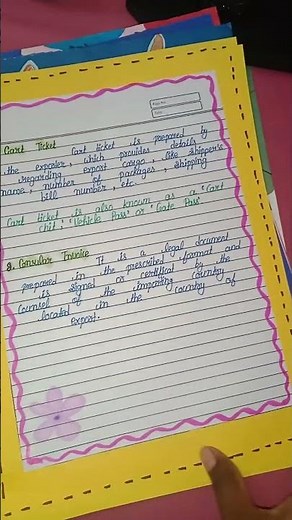 Page No.
Date
Cart Ticket
Cart ticket is prepared by
the exporter, which provides details
regarding export cargo, like shipper's
name, number of packages, shipping
bill number, etc.
Cart ticket is also known as a 'Cart
chit', 'Vehicle Pass' or 'Gate Pass'.
2. Consular Invoice
It is a legal document
prepared in the prescribed format and
is signed or certified by the
Counsel of the importing country
located in the country of
Export.